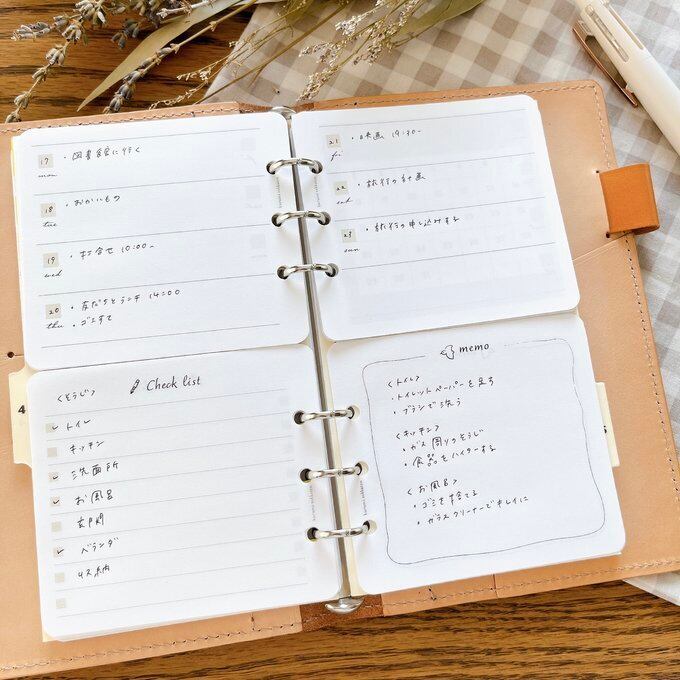 17 ・図書館に行く
mon
18 ・おかいもの
tue
19 ・打合せ 10:00〜
wed
20 ・友だちとランチ 14:00
thu ・ゴミすて
21 ・映画 19:30〜
fri
22 ・旅行の計画
sat
23 ・旅行の申し込みする
sun
4
<そうじ> Check list
トイレ
キッチン
洗面所
お風呂
玄関
ベランダ
収納
memo
<トイレ>
・トイレットペーパーを足す
・ブラシで洗う
<キッチン>
・ガス周りのそうじ
・食器をハイターする
<お風呂>
・ゴミを捨てる
・ガラスクリーナーでキレイに